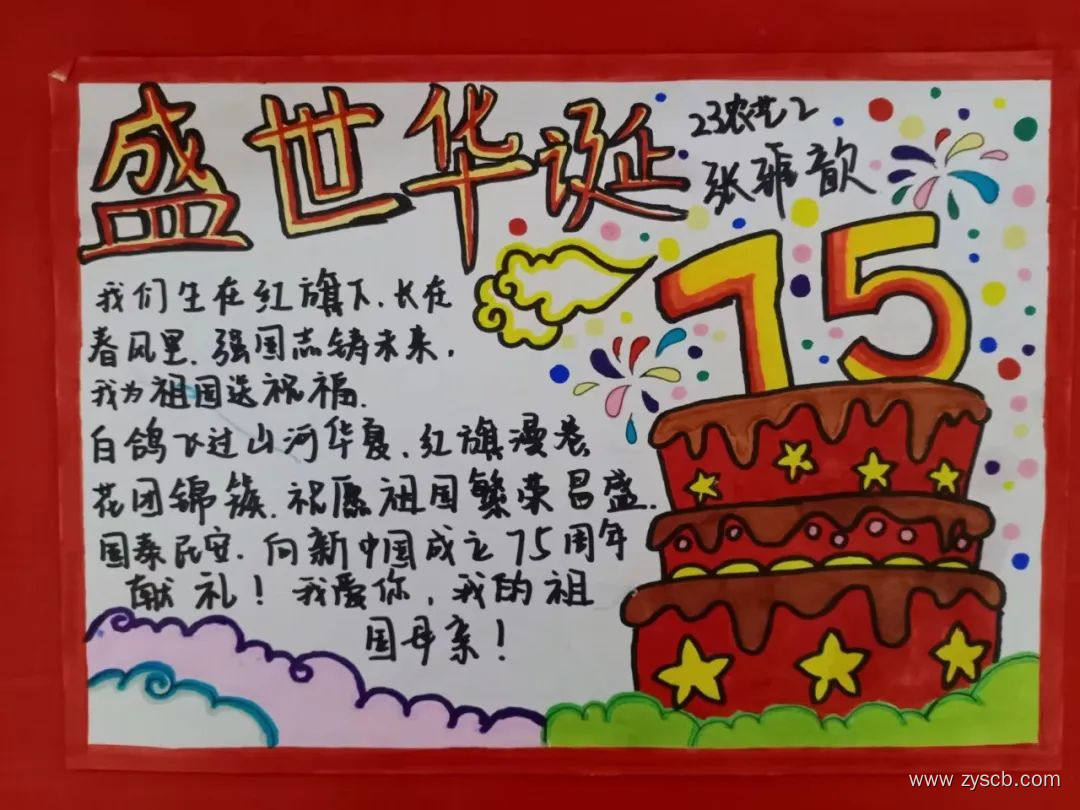 盛世华诞
23农艺2
张琥歆
75
我们生在红旗下，长在
春风里，强国志铸未来，
我为祖国送祝福.
白鸽飞过山河华夏，红旗漫卷
花团锦簇，祝愿祖国繁荣昌盛.
国泰民安，向新中国成立75周年
献礼！我爱你，我的祖
国母亲！
www.zyscb.com